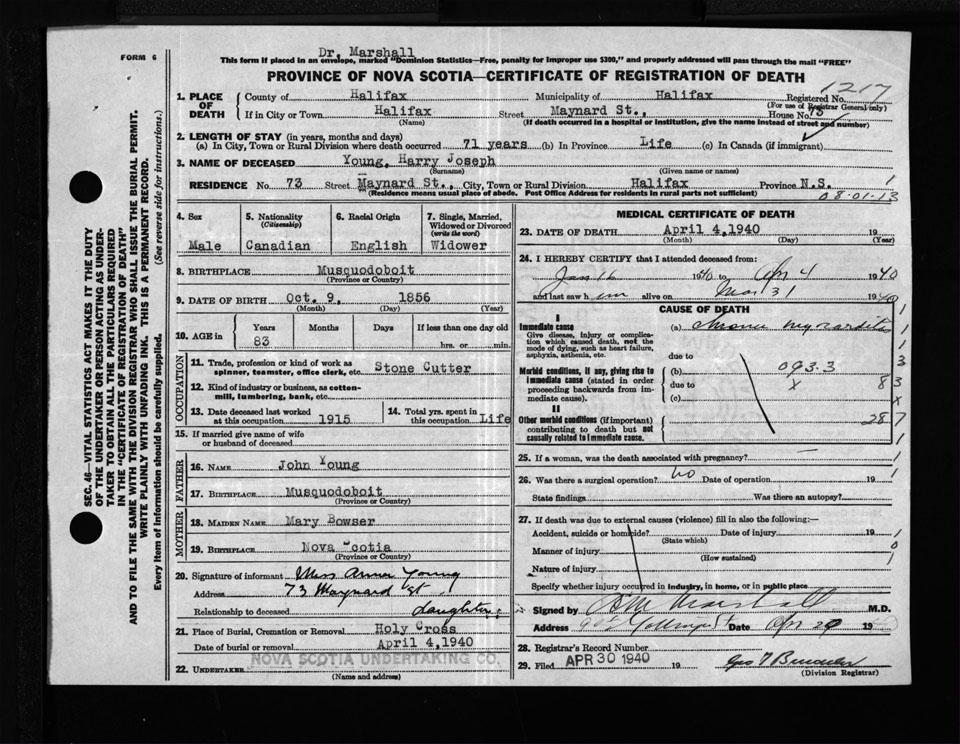 FORM 6
Dr. Marshall
This form if placed in an envelope, marked "Dominion Statistics—Free, penalty for improper use $300," and properly addressed will pass through the mail "FREE"
PROVINCE OF NOVA SCOTIA—CERTIFICATE OF REGISTRATION OF DEATH
1217
1. PLACE OF DEATH
County of Halifax Municipality of Halifax Registered No.
(For use of Registrar General only)
If in City or Town Halifax Street Maynard St., House No. 73
(Name) (If death occurred in a hospital or institution, give the name instead of street and number)
2. LENGTH OF STAY (in years, months and days)
(a) In City, Town or Rural Division where death occurred 71 years (b) In Province Life (c) In Canada (if immigrant)
3. NAME OF DECEASED Young, Harry Joseph
(Surname) (Given name or names)
RESIDENCE No. 73 Street Maynard St., City, Town or Rural Division Halifax Province N.S.
(Residence means usual place of abode. Post Office Address for residents in rural parts not sufficient)
08.01.13
4. Sex Male
5. Nationality (Citizenship) Canadian
6. Racial Origin English
7. Single, Married, Widowed or Divorced (write the word) Widower
8. BIRTHPLACE Musquodoboit
(Province or Country)
9. DATE OF BIRTH Oct. 9, 1856
(Month) (Day) (Year)
10. AGE in Years Months Days If less than one day old
83 hrs. or min.
OCCUPATION
11. Trade, profession or kind of work as spinner, teamster, office clerk, etc. Stone Cutter
12. Kind of industry or business, as cotton-mill, lumbering, bank, etc.
13. Date deceased last worked at this occupation 1915
14. Total yrs. spent in this occupation Life
15. If married give name of wife or husband of deceased
FATHER
16. NAME John Young
17. BIRTHPLACE Musquodoboit
(Province or Country)
MOTHER
18. MAIDEN NAME Mary Bowser
19. BIRTHPLACE Nova Scotia
(Province or Country)
20. Signature of informant Miss Anna Young
Address 73 Maynard St.
Relationship to deceased Daughter
21. Place of Burial, Cremation or Removal Holy Cross
Date of burial or removal April 4, 1940
22. UNDERTAKER NOVA SCOTIA UNDERTAKING CO.
(Name and address)
MEDICAL CERTIFICATE OF DEATH
23. DATE OF DEATH April 4, 1940 19
(Month) (Day) (Year)
24. I HEREBY CERTIFY that I attended deceased from:
Jan 16 1940 to Apr 4 1940
and last saw him alive on Mar 31 1940
CAUSE OF DEATH
I
Immediate cause
Give disease, injury or complication which caused death, not the mode of dying, such as heart failure, asphyxia, asthenia, etc.
(a) Chronic Myocarditis
due to
Morbid conditions, if any, giving rise to immediate cause (stated in order proceeding backwards from immediate cause).
(b) 093.3
due to X 83
(c)
II
Other morbid conditions (if important) contributing to death but not causally related to immediate cause.
287
25. If a woman, was the death associated with pregnancy? —
26. Was there a surgical operation? no Date of operation 19
State findings Was there an autopsy?
27. If death was due to external causes (violence) fill in also the following:—
Accident, suicide or homicide? Date of injury 19
(State which)
Manner of injury
(How sustained)
Nature of injury
Specify whether injury occurred in industry, in home, or in public place
Signed by Marshall M.D.
Address Date Apr 29 1940
28. Registrar's Record Number
29. Filed APR 30 1940 19
(Division Registrar)
SEC. 46—VITAL STATISTICS ACT MAKES IT THE DUTY
OF THE UNDERTAKER OR PERSON ACTING AS UNDER-
TAKER TO OBTAIN ALL THE PARTICULARS REQUIRED
IN THE "CERTIFICATE OF REGISTRATION OF DEATH"
AND TO FILE THE SAME WITH THE DIVISION REGISTRAR WHO SHALL ISSUE THE BURIAL PERMIT.
WRITE PLAINLY WITH UNFADING INK. THIS IS A PERMANENT RECORD.
Every item of information should be carefully supplied. (See reverse side for instructions.)